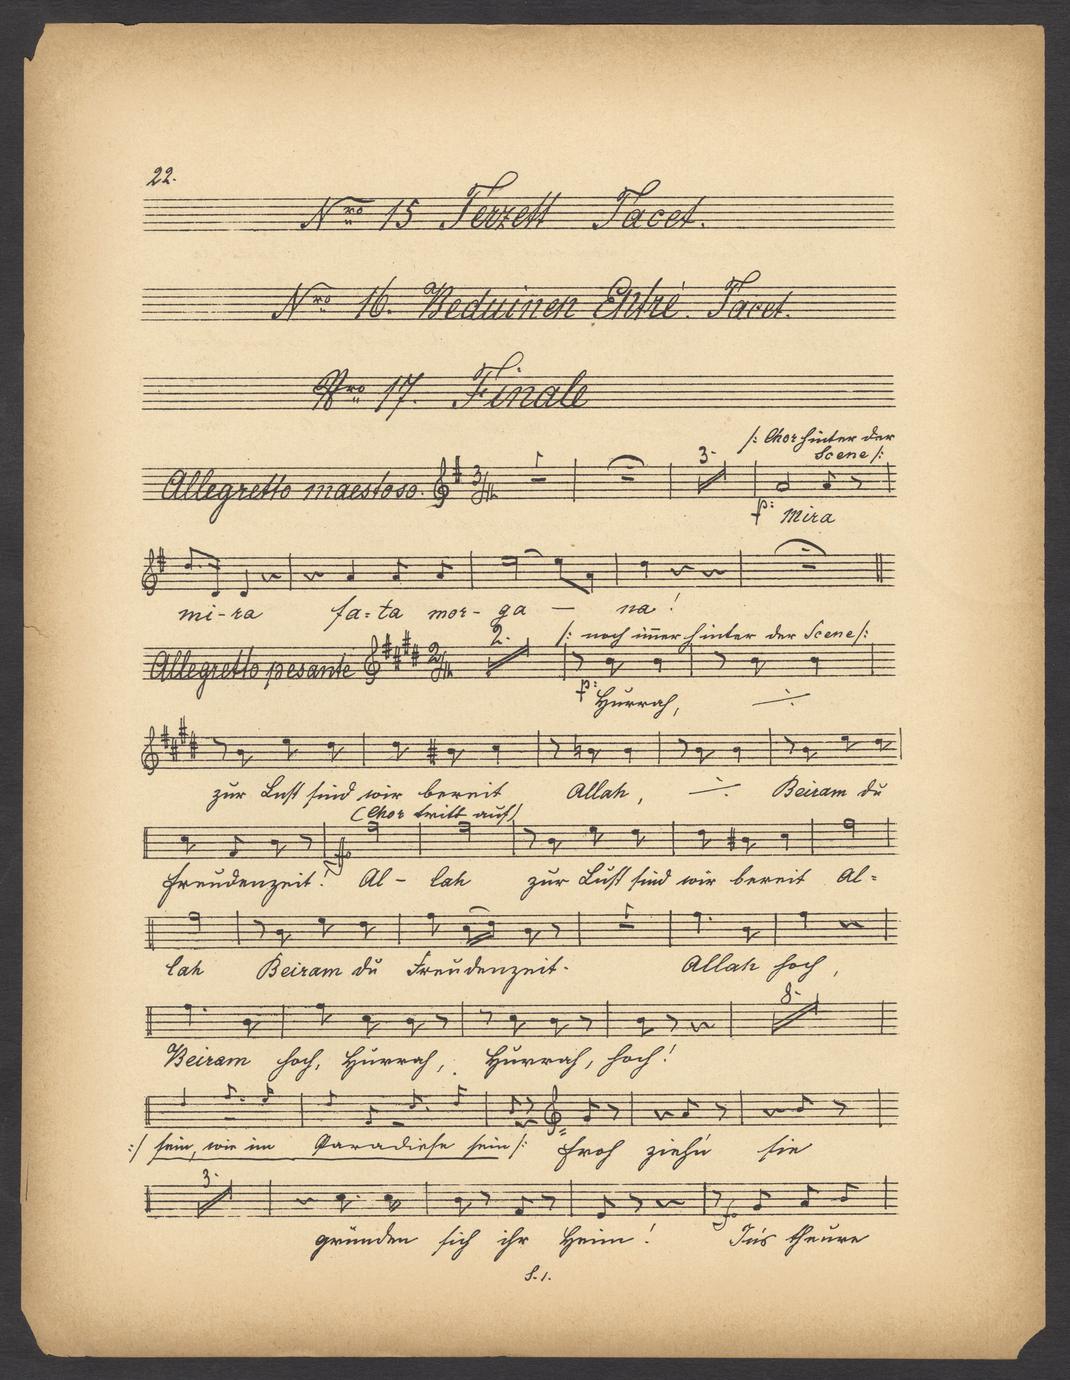 22.
Nro 15 Terzett Tacet.
Nro 16. Beduinen Entré. Tacet.
Nro 17. Finale
/: Chor hinter der
Scene :/
Allegretto maestoso. 3/4 3.
p: Mira
mi-ra fa=ta mor- ga — na!
2. /: noch im̅er hinter der Scene /:
Allegretto pesante 2/4
p: Hurrah, ·/·
zur Lust sind wir bereit Allah, ·/· Beiram du
(Chor tritt auf)
Freudenzeit. Al - lah zur Lust sind wir bereit Al=
lah Beiram du Freudenzeit. Allah hoch,
8.
Beiram hoch, Hurrah, Hurrah, hoch!
:/ sein, wie im Paradiese sein /: Froh ziehn sie
3.
gründen sich ihr Heim! In's theure
S. 1.